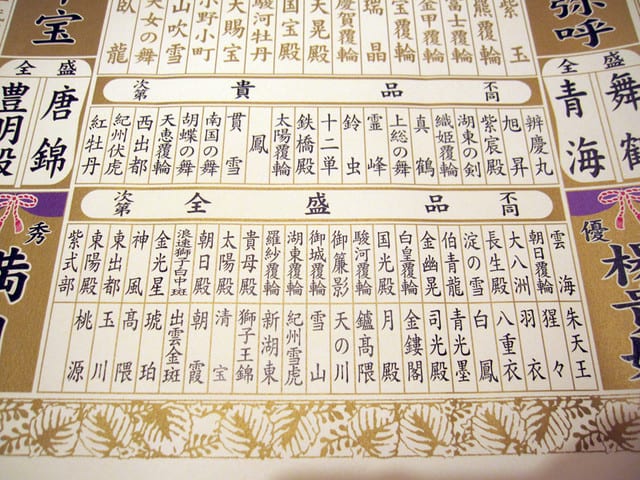 弥呼
紫玉
熊覆輪
富士覆輪
金甲覆輪
宝覆輪
瑞晶
慶賀覆輪
天晃殿
国宝殿
駿河牡丹
天賜宝
小野小町
山吹雪
天女の舞
臥龍
宝
全盛
舞鶴
青海
次第 貴品 不同
辨慶丸
旭昇
紫宸殿
湖東の剣
織姫覆輪
真鶴
上総の舞
霊峰
鈴虫
十二単
鉄橋殿
太陽覆輪
鳳
貫雪
南国の舞
胡蝶の舞
天恵覆輪
西出都
紀州伏虎
紅牡丹
全盛
唐錦
豊明殿
優
次第 全盛品 不同
雲海
朝日覆輪
大八洲
長生殿
淀の雪
伯青龍
金幽晃
白皇覆輪
国光殿
駿河覆輪
御簾影
御城覆輪
湖東覆輪
羅紗覆輪
貴母殿
太陽殿
朝日殿
浪速獅子白中斑
金光星
神風
東出都
東陽殿
紫式部
朱天王
猩々
羽衣
八重衣
白鳳
青光墨
司光殿
金鏤閣
月殿
鑪髙隈
天の川
雪山
紀州雪虎
新湖東
獅子王錦
清宝
朝霞
出雲金斑
琥珀
髙隈
玉川
桃源
秀